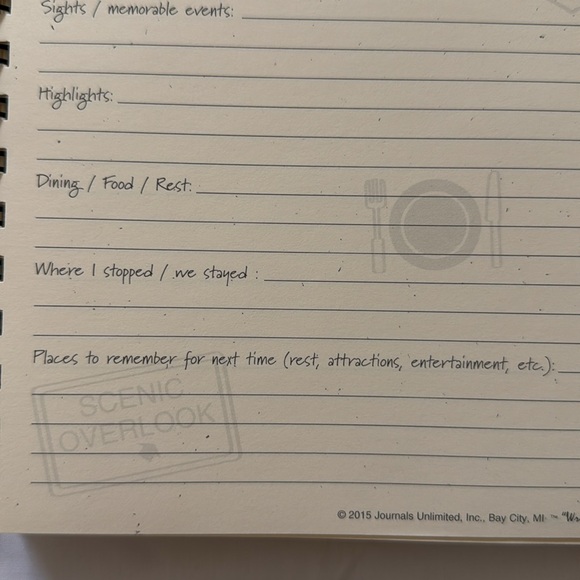 Sights / memorable events:
Highlights:
Dining / Food / Rest:
Where I stopped / we stayed :
Places to remember for next time (rest, attractions, entertainment, etc.):
SCENIC
OVERLOOK
© 2015 Journals Unlimited, Inc., Bay City, MI ™